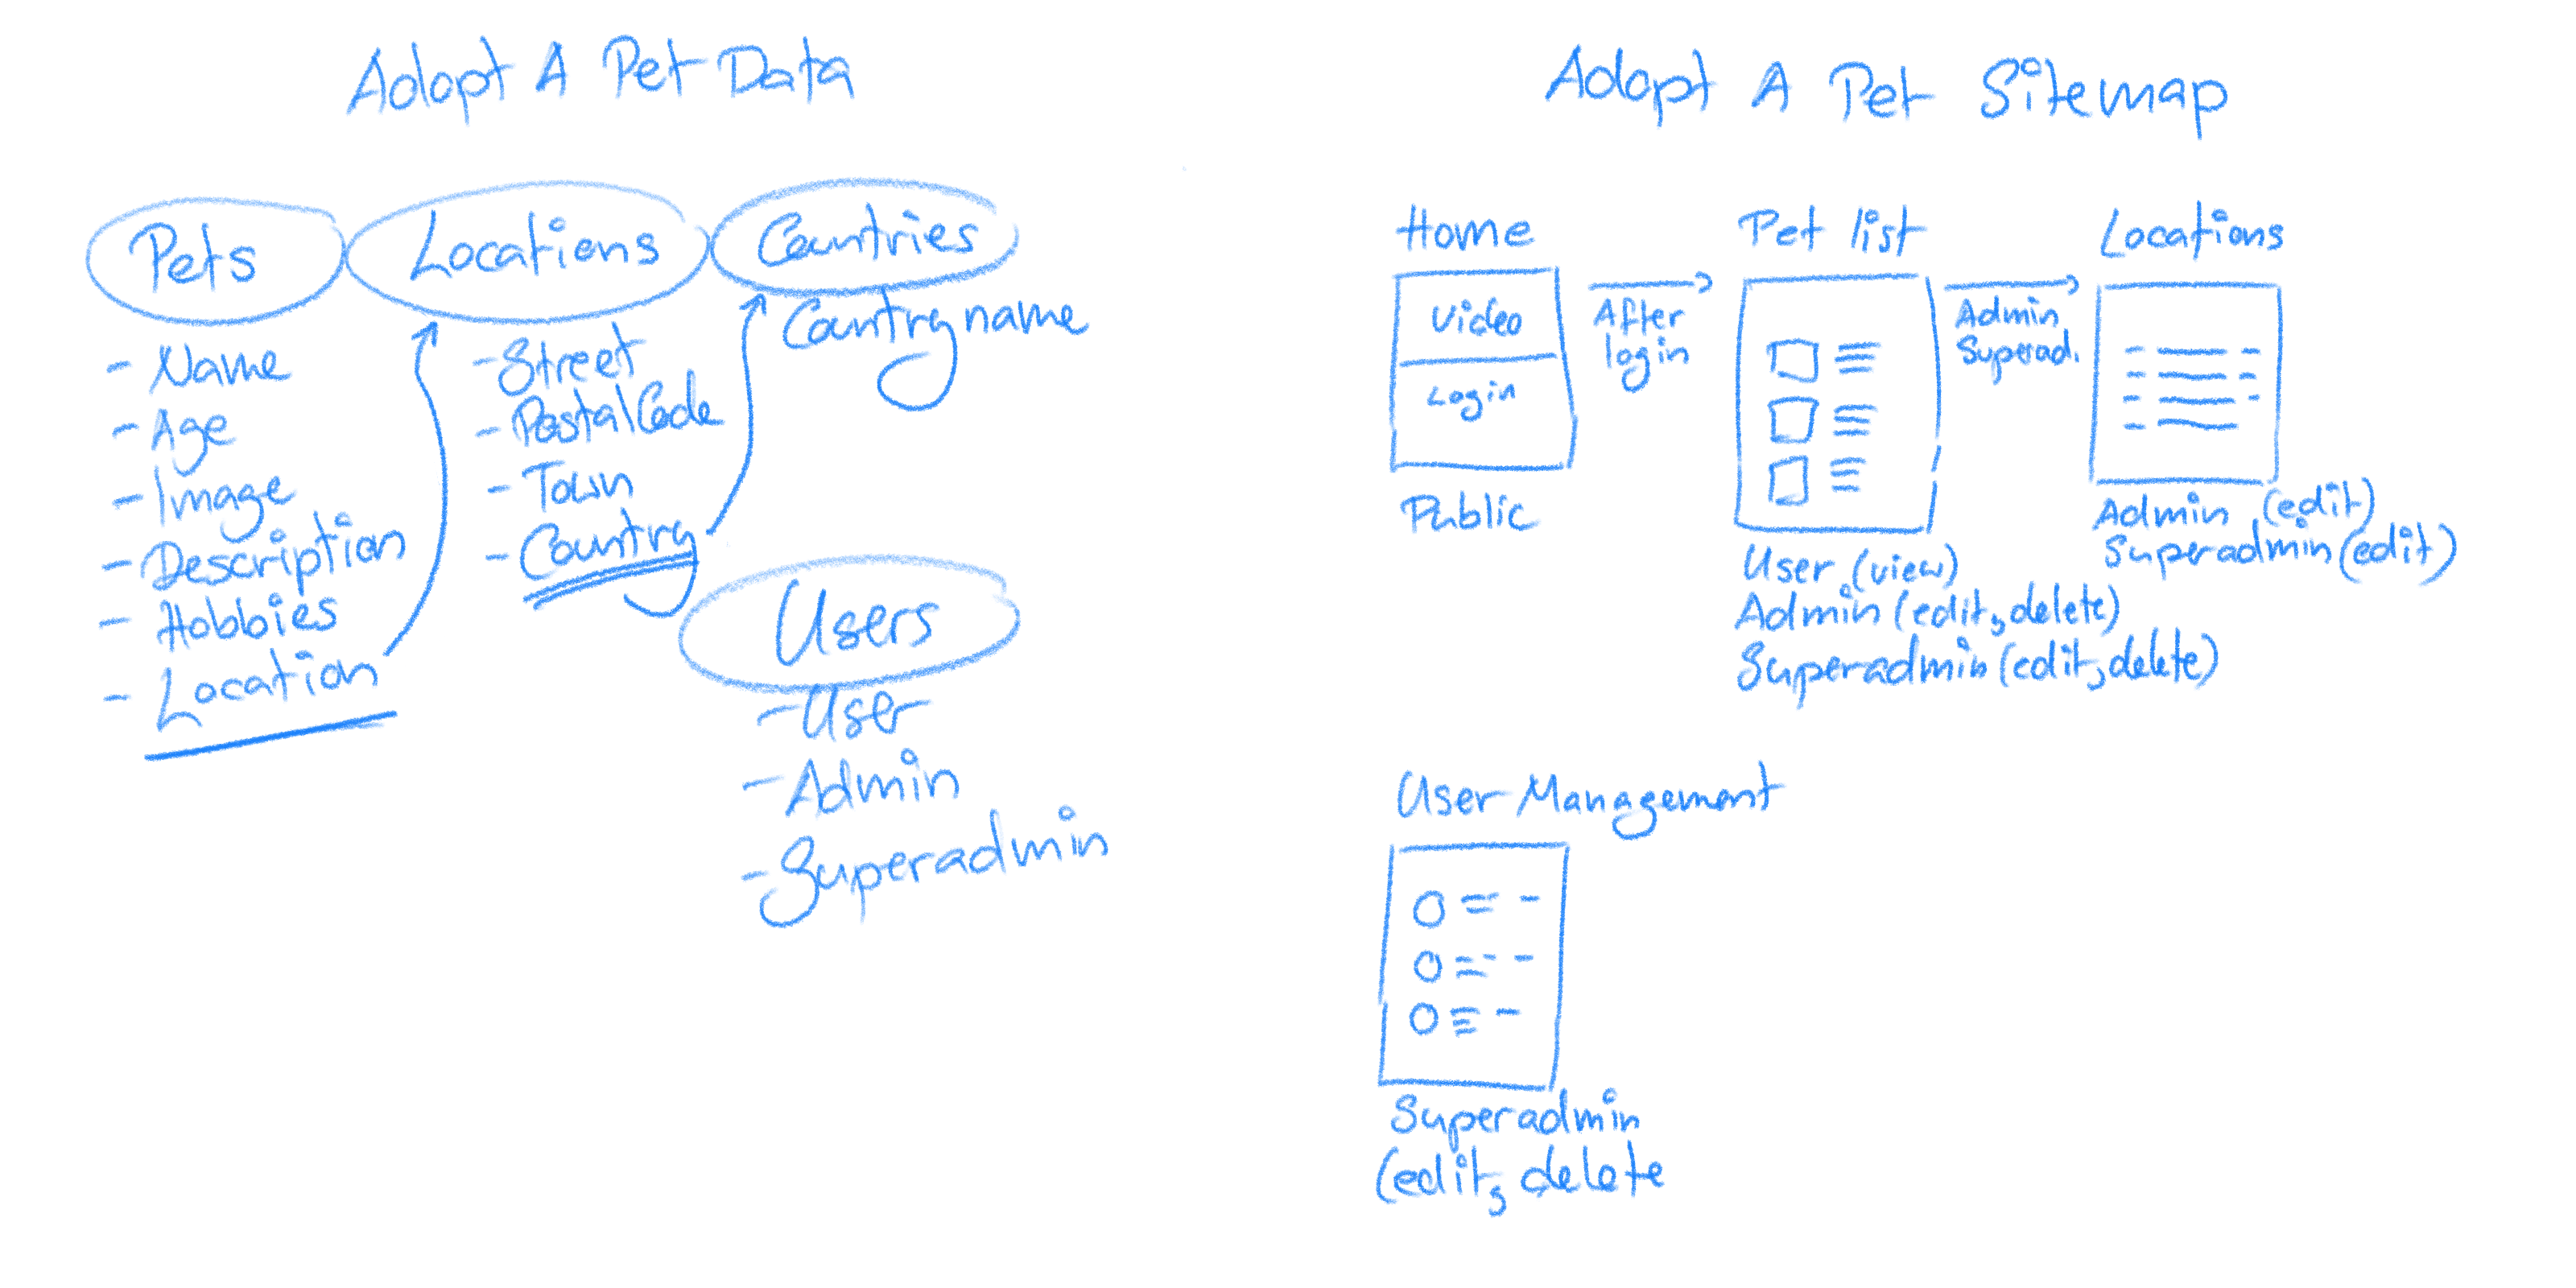 Adopt A Pet Data
Pets
- Name
- Age
- Image
- Description
- Hobbies
- Location
Locations
- Street
- Postal Code
- Town
- Country
Countries
Country name
Users
- User
- Admin
- Superadmin
Adopt A Pet Sitemap
Home
Video
Login
Public
After
login
Pet list
User (view)
Admin (edit, delete)
Superadmin (edit, delete)
Admin
Superad.
Locations
Admin (edit)
Superadmin (edit)
User Management
Superadmin
(edit, delete